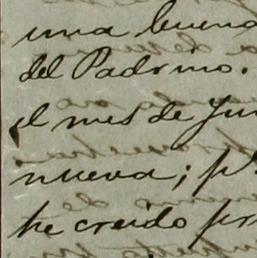 una buena
del Padrino.
el mes de Jun
nueva; p
he creido pr